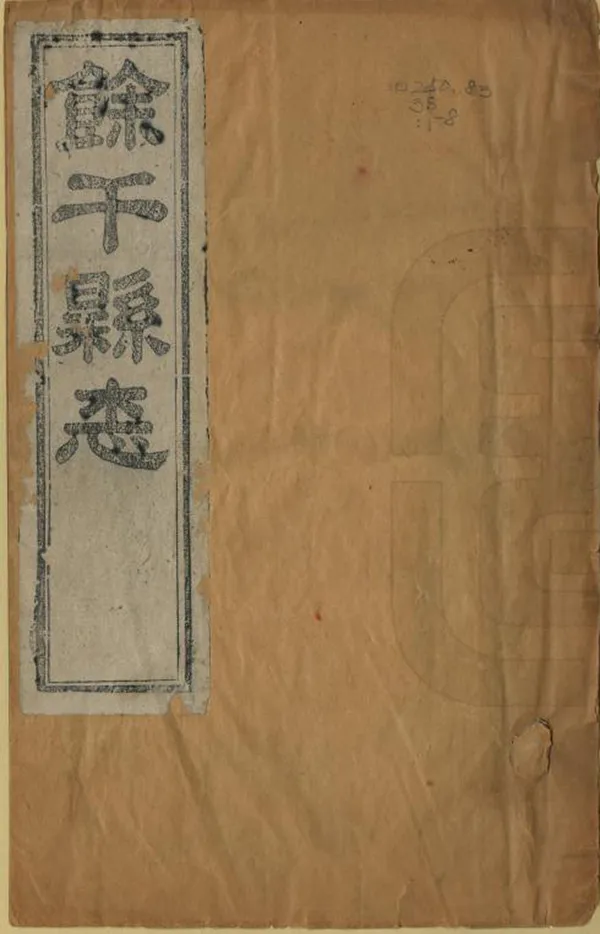 餘干縣志
240.83
38
:1-8